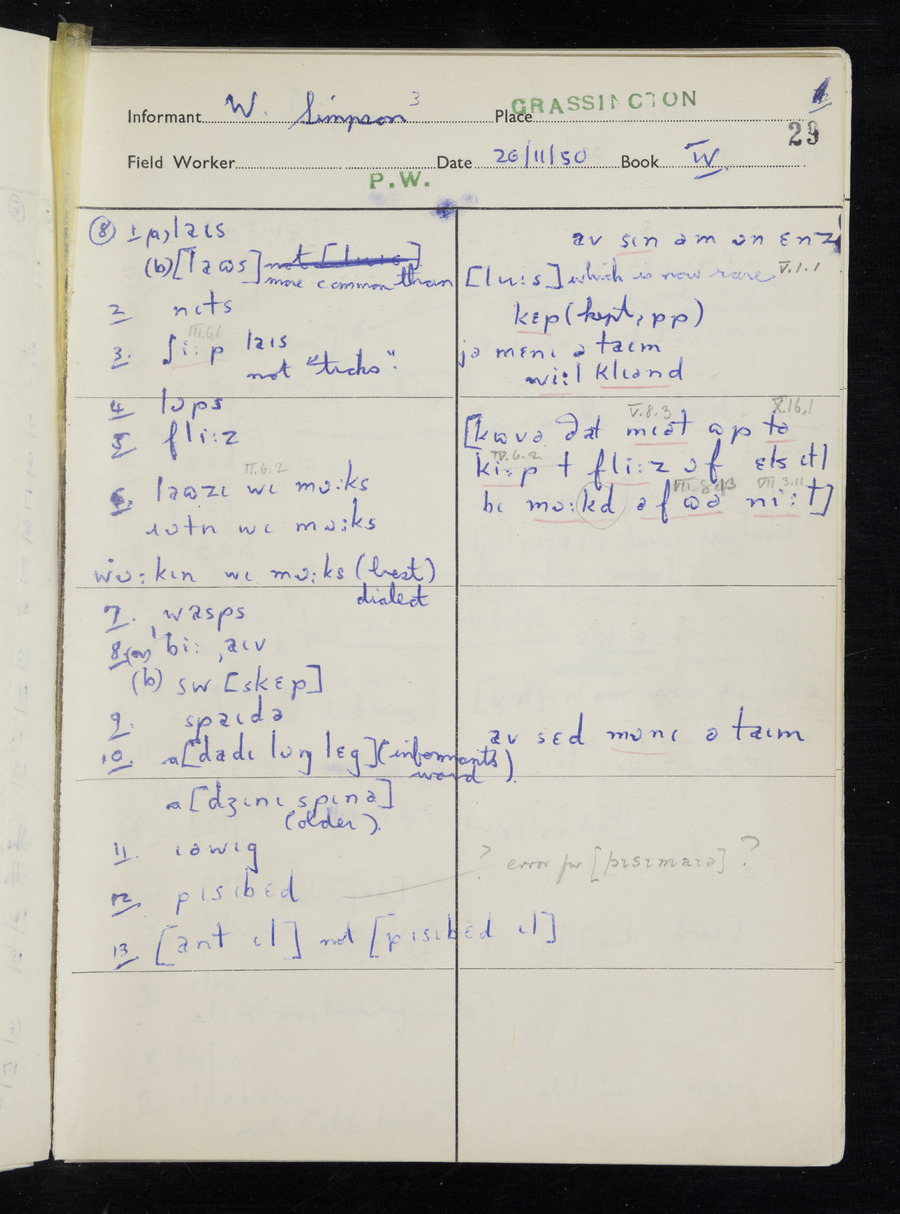 Informant W. Simpson 3 Place GRASSINGTON 1
29
Field Worker P.W. Date 26/11/50 Book IV
⑧ 1 (a) laɪs
(b) [laʊs] not [lu:s]
more common than [lu:s] which is now rare V.1.1
av sɪn əm ɒn ɛnz
2 nɪts
kɛp (kept, pp)
3. III.6.1
ʃi:p laɪs
not "ticks".
jə mɛnɪ ə taɪm
wi:l klɪand
4 lɒps
5 fli:z
6. II.6.2
laʊzɪ wɪ mɔ:ks
ɹɒtn wɪ mɔ:ks
wɔ:kɪn wɪ mɔ:ks (best)
dialect
V.8.3 X.16.1
[kʊvə ðat mɪət ʊp tə
IV.6.2
ki:p t fli:z ɒf ɛls ɪtl
VII.8.13 VII.3.11
bɪ mɔ:kd əfʊə ni:t]
7. wasps
8 (a) ˈbi: ˌaɪv
(b) sw [skɛp]
9. spaɪdə
10. a [dadɪ lɒŋ lɛg] (informant's
word).
av sɛd mɒnɪ ə taɪm
a [dʒɪnɪ spɪnə]
(older).
11. ɪəwɪg
12. pɪsɪbɛd
? error for [pɪsɪmaɪə] ?
13 [ant ɪl] not [pɪsɪbɛd ɪl]